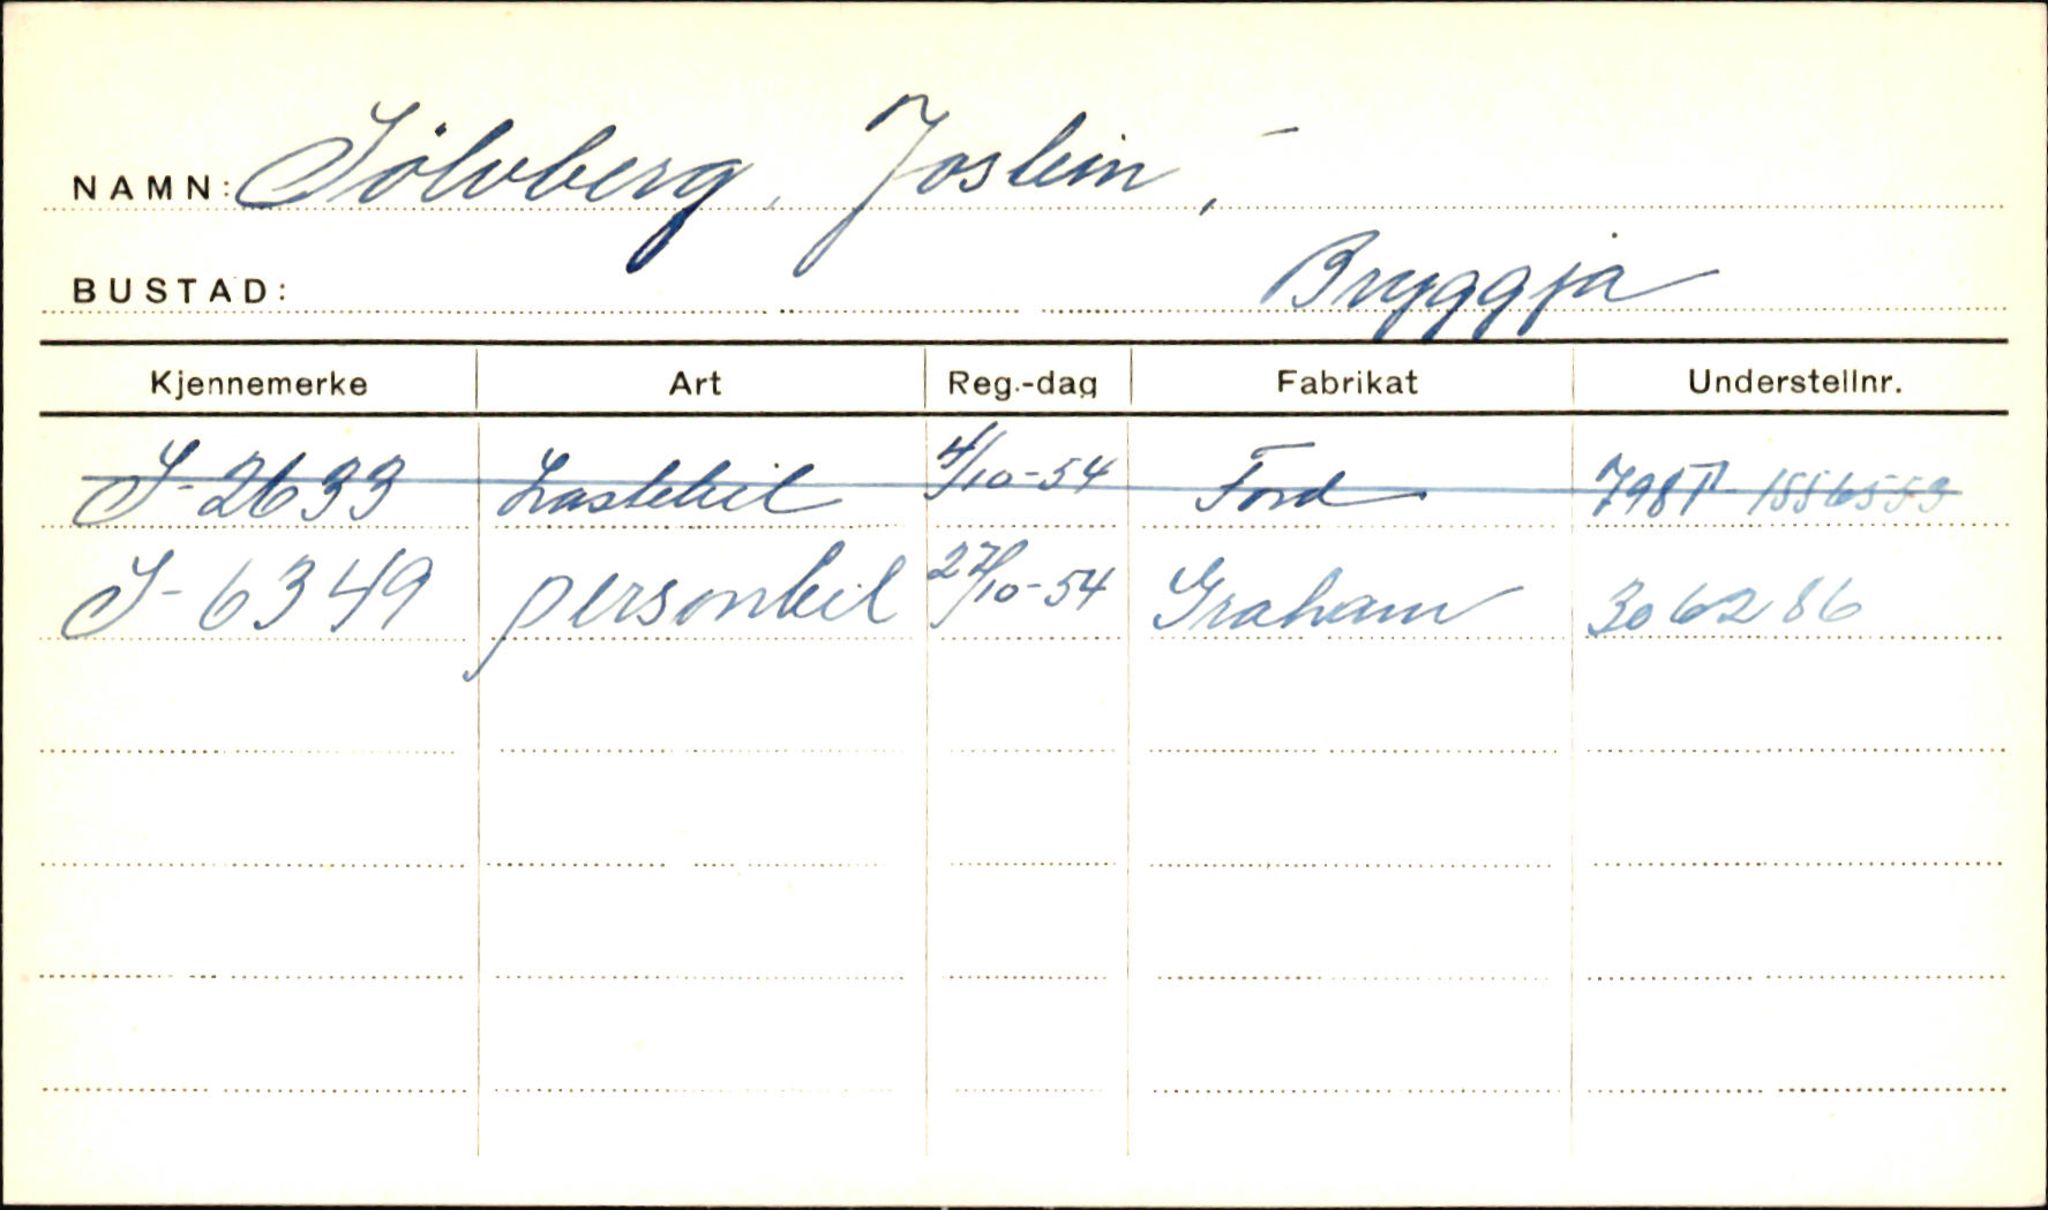 NAMN: Sölvberg, Joslein,
BUSTAD: Bryggja
Kjennemerke Art Reg.-dag Fabrikat Understellnr.
S-2633 Lastebil 4/10-54 Ford 798T-1556553
S-6349 personbil 27/10-54 Graham 306286